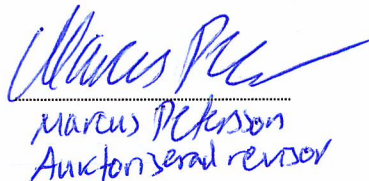 Marcus Petersson
Auktoriserad revisor